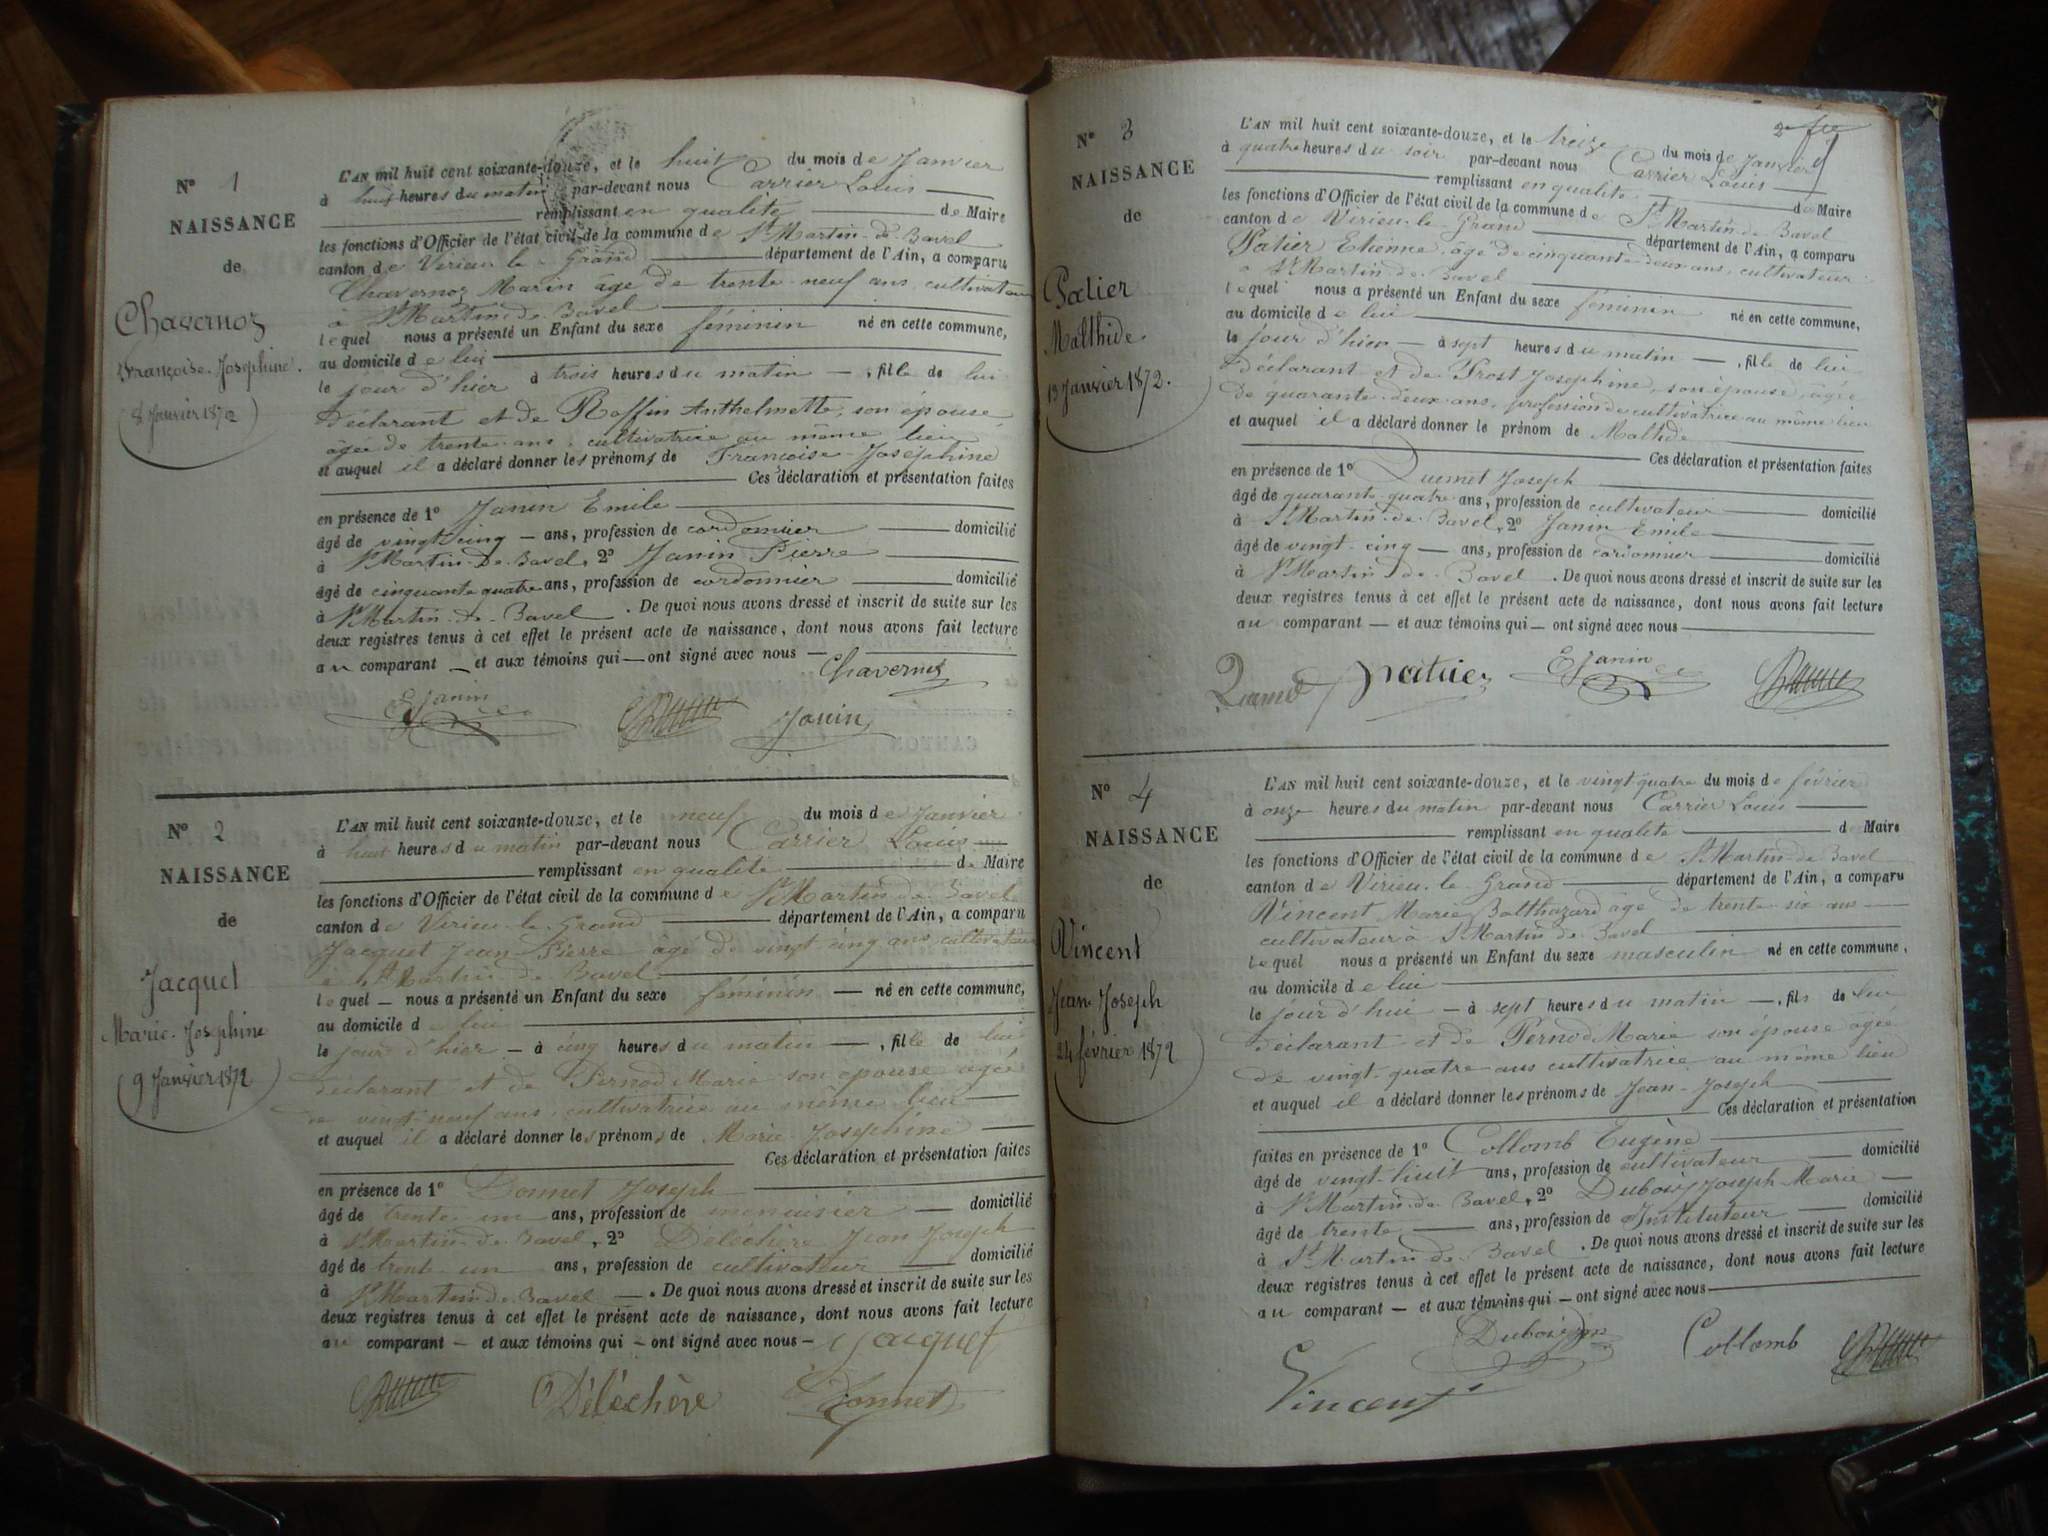 N° 1
NAISSANCE
de
Chavernoz
Françoise-Joséphine.
(8 Janvier 1872)
L'AN mil huit cent soixante-douze, et le huit du mois de Janvier
à huit heures du matin par-devant nous Carrier Louis
remplissant en qualité de Maire
les fonctions d'Officier de l'état civil de la commune de St Martin-de-Bavel
canton de Virieu-le-Grand département de l'Ain, a comparu
Chavernoz Marin âgé de trente-neuf ans cultivateur
à St Martin-de-Bavel
lequel nous a présenté un Enfant du sexe féminin né en cette commune,
au domicile de lui
le jour d'hier à trois heures du matin, fille de lui
déclarant et de Roffin Anthelmette, son épouse
âgée de trente ans, cultivatrice au même lieu
et auquel il a déclaré donner les prénoms de Françoise-Joséphine
Ces déclaration et présentation faites
en présence de 1° Janin Emile
âgé de vingt-cinq ans, profession de cordonnier domicilié
à St Martin-de-Bavel, 2° Janin Pierre
âgé de cinquante quatre ans, profession de cordonnier domicilié
à St Martin-de-Bavel. De quoi nous avons dressé et inscrit de suite sur les
deux registres tenus à cet effet le présent acte de naissance, dont nous avons fait lecture
au comparant et aux témoins qui ont signé avec nous
Chavernoz
EJanin Janin
N° 2
NAISSANCE
de
Jacquet
Marie-Joséphine
(9 Janvier 1872)
L'AN mil huit cent soixante-douze, et le neuf du mois de Janvier
à huit heures du matin par-devant nous Carrier Louis
remplissant en qualité de Maire
les fonctions d'Officier de l'état civil de la commune de St Martin-de-Bavel
canton de Virieu-le-Grand département de l'Ain, a comparu
Jacquet Jean-Pierre âgé de vingt cinq ans cultivateur
à St Martin de Bavel
lequel nous a présenté un Enfant du sexe féminin né en cette commune,
au domicile de lui
le jour d'hier à cinq heures du matin, fille de lui
déclarant et de Pernod Marie son épouse âgée
de vingt-neuf ans, cultivatrice au même lieu
et auquel il a déclaré donner les prénoms de Marie-Joséphine
Ces déclaration et présentation faites
en présence de 1° Donnet Joseph
âgé de trente un ans, profession de menuisier domicilié
à St Martin-de-Bavel, 2° Déléchère Jean Joseph
âgé de trente un ans, profession de cultivateur domicilié
à St Martin-de-Bavel. De quoi nous avons dressé et inscrit de suite sur les
deux registres tenus à cet effet le présent acte de naissance, dont nous avons fait lecture
au comparant et aux témoins qui ont signé avec nous Jacquet
Déléchère Donnet
N° 3
NAISSANCE
de
Patier
Malthide
13 Janvier 1872.
L'AN mil huit cent soixante-douze, et le treize du mois de Janvier
à quatre heures du soir par-devant nous Carrier Louis
remplissant en qualité de Maire
les fonctions d'Officier de l'état civil de la commune de St Martin-de-Bavel
canton de Virieu-le-Grand département de l'Ain, a comparu
Patier Etienne, âgé de cinquante-deux ans, cultivateur
à St Martin-de-Bavel
lequel nous a présenté un Enfant du sexe féminin né en cette commune,
au domicile de lui
le jour d'hier à sept heures du matin, fille de lui
déclarant et de Prost Joséphine, son épouse, âgée
de quarante-deux ans, profession de cultivatrice au même lieu
et auquel il a déclaré donner le prénom de Maltide
Ces déclaration et présentation faites
en présence de 1° Joseph
âgé de quarante-quatre ans, profession de cultivateur domicilié
à St Martin-de-Bavel, 2° Janin Emile
âgé de vingt-cinq ans, profession de cordonnier domicilié
à St Martin de Bavel. De quoi nous avons dressé et inscrit de suite sur les
deux registres tenus à cet effet le présent acte de naissance, dont nous avons fait lecture
au comparant et aux témoins qui ont signé avec nous
EJanin
N° 4
NAISSANCE
de
Vincent
Jean-Joseph
24 février 1872
L'AN mil huit cent soixante-douze, et le vingt quatre du mois de février
à onze heures du matin par-devant nous Carrier Louis
remplissant en qualité de Maire
les fonctions d'Officier de l'état civil de la commune de St Martin-de-Bavel
canton de Virieu-le-Grand département de l'Ain, a comparu
Vincent Marie Balthazard âgé de trente six ans
cultivateur à St Martin de Bavel
lequel nous a présenté un Enfant du sexe masculin né en cette commune,
au domicile de lui
le jour d'hui à sept heures du matin, fils de lui
déclarant et de Pernod Marie son épouse âgée
de vingt-quatre ans cultivatrice au même lieu
et auquel il a déclaré donner les prénoms de Jean-Joseph
Ces déclaration et présentation
faites en présence de 1° Collomb Eugène
âgé de vingt-huit ans, profession de cultivateur domicilié
à St Martin-de-Bavel, 2° Joseph Marie
âgé de trente ans, profession de Instituteur domicilié
à St Martin de Bavel. De quoi nous avons dressé et inscrit de suite sur les
deux registres tenus à cet effet le présent acte de naissance, dont nous avons fait lecture
au comparant et aux témoins qui ont signé avec nous
Collomb
Vincent